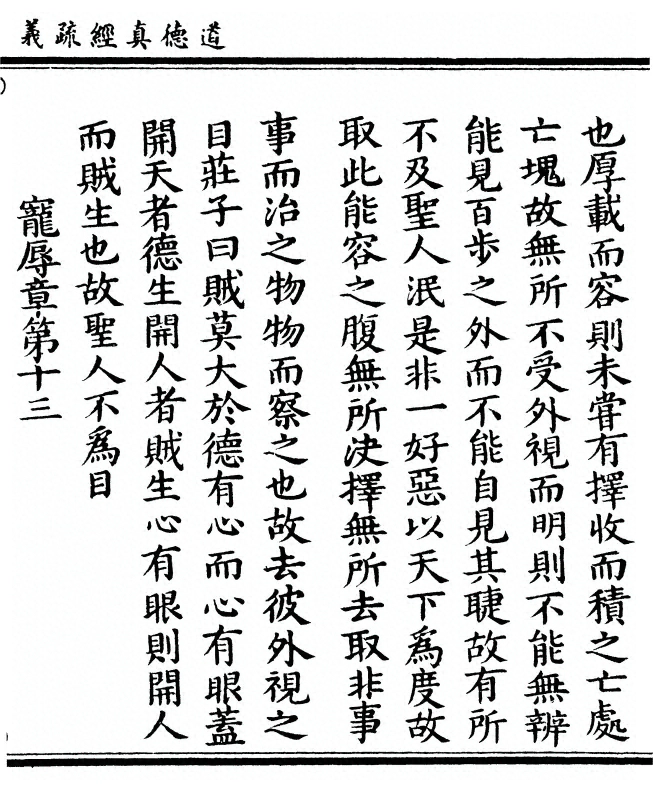 道德真經疏義
也厚載而容則未嘗有擇收而積之亡處
亡塊故無所不受外視而明則不能無辨
能見百步之外而不能自見其睫故有所
不及聖人泯是非一好惡以天下為度故
取此能容之腹無所決擇無所去取非事
事而治之物物而察之也故去彼外視之
目莊子曰賊莫大於德有心而心有眼蓋
開天者德生開人者賊生心有眼則開人
而賊生也故聖人不為目
寵辱章第十三